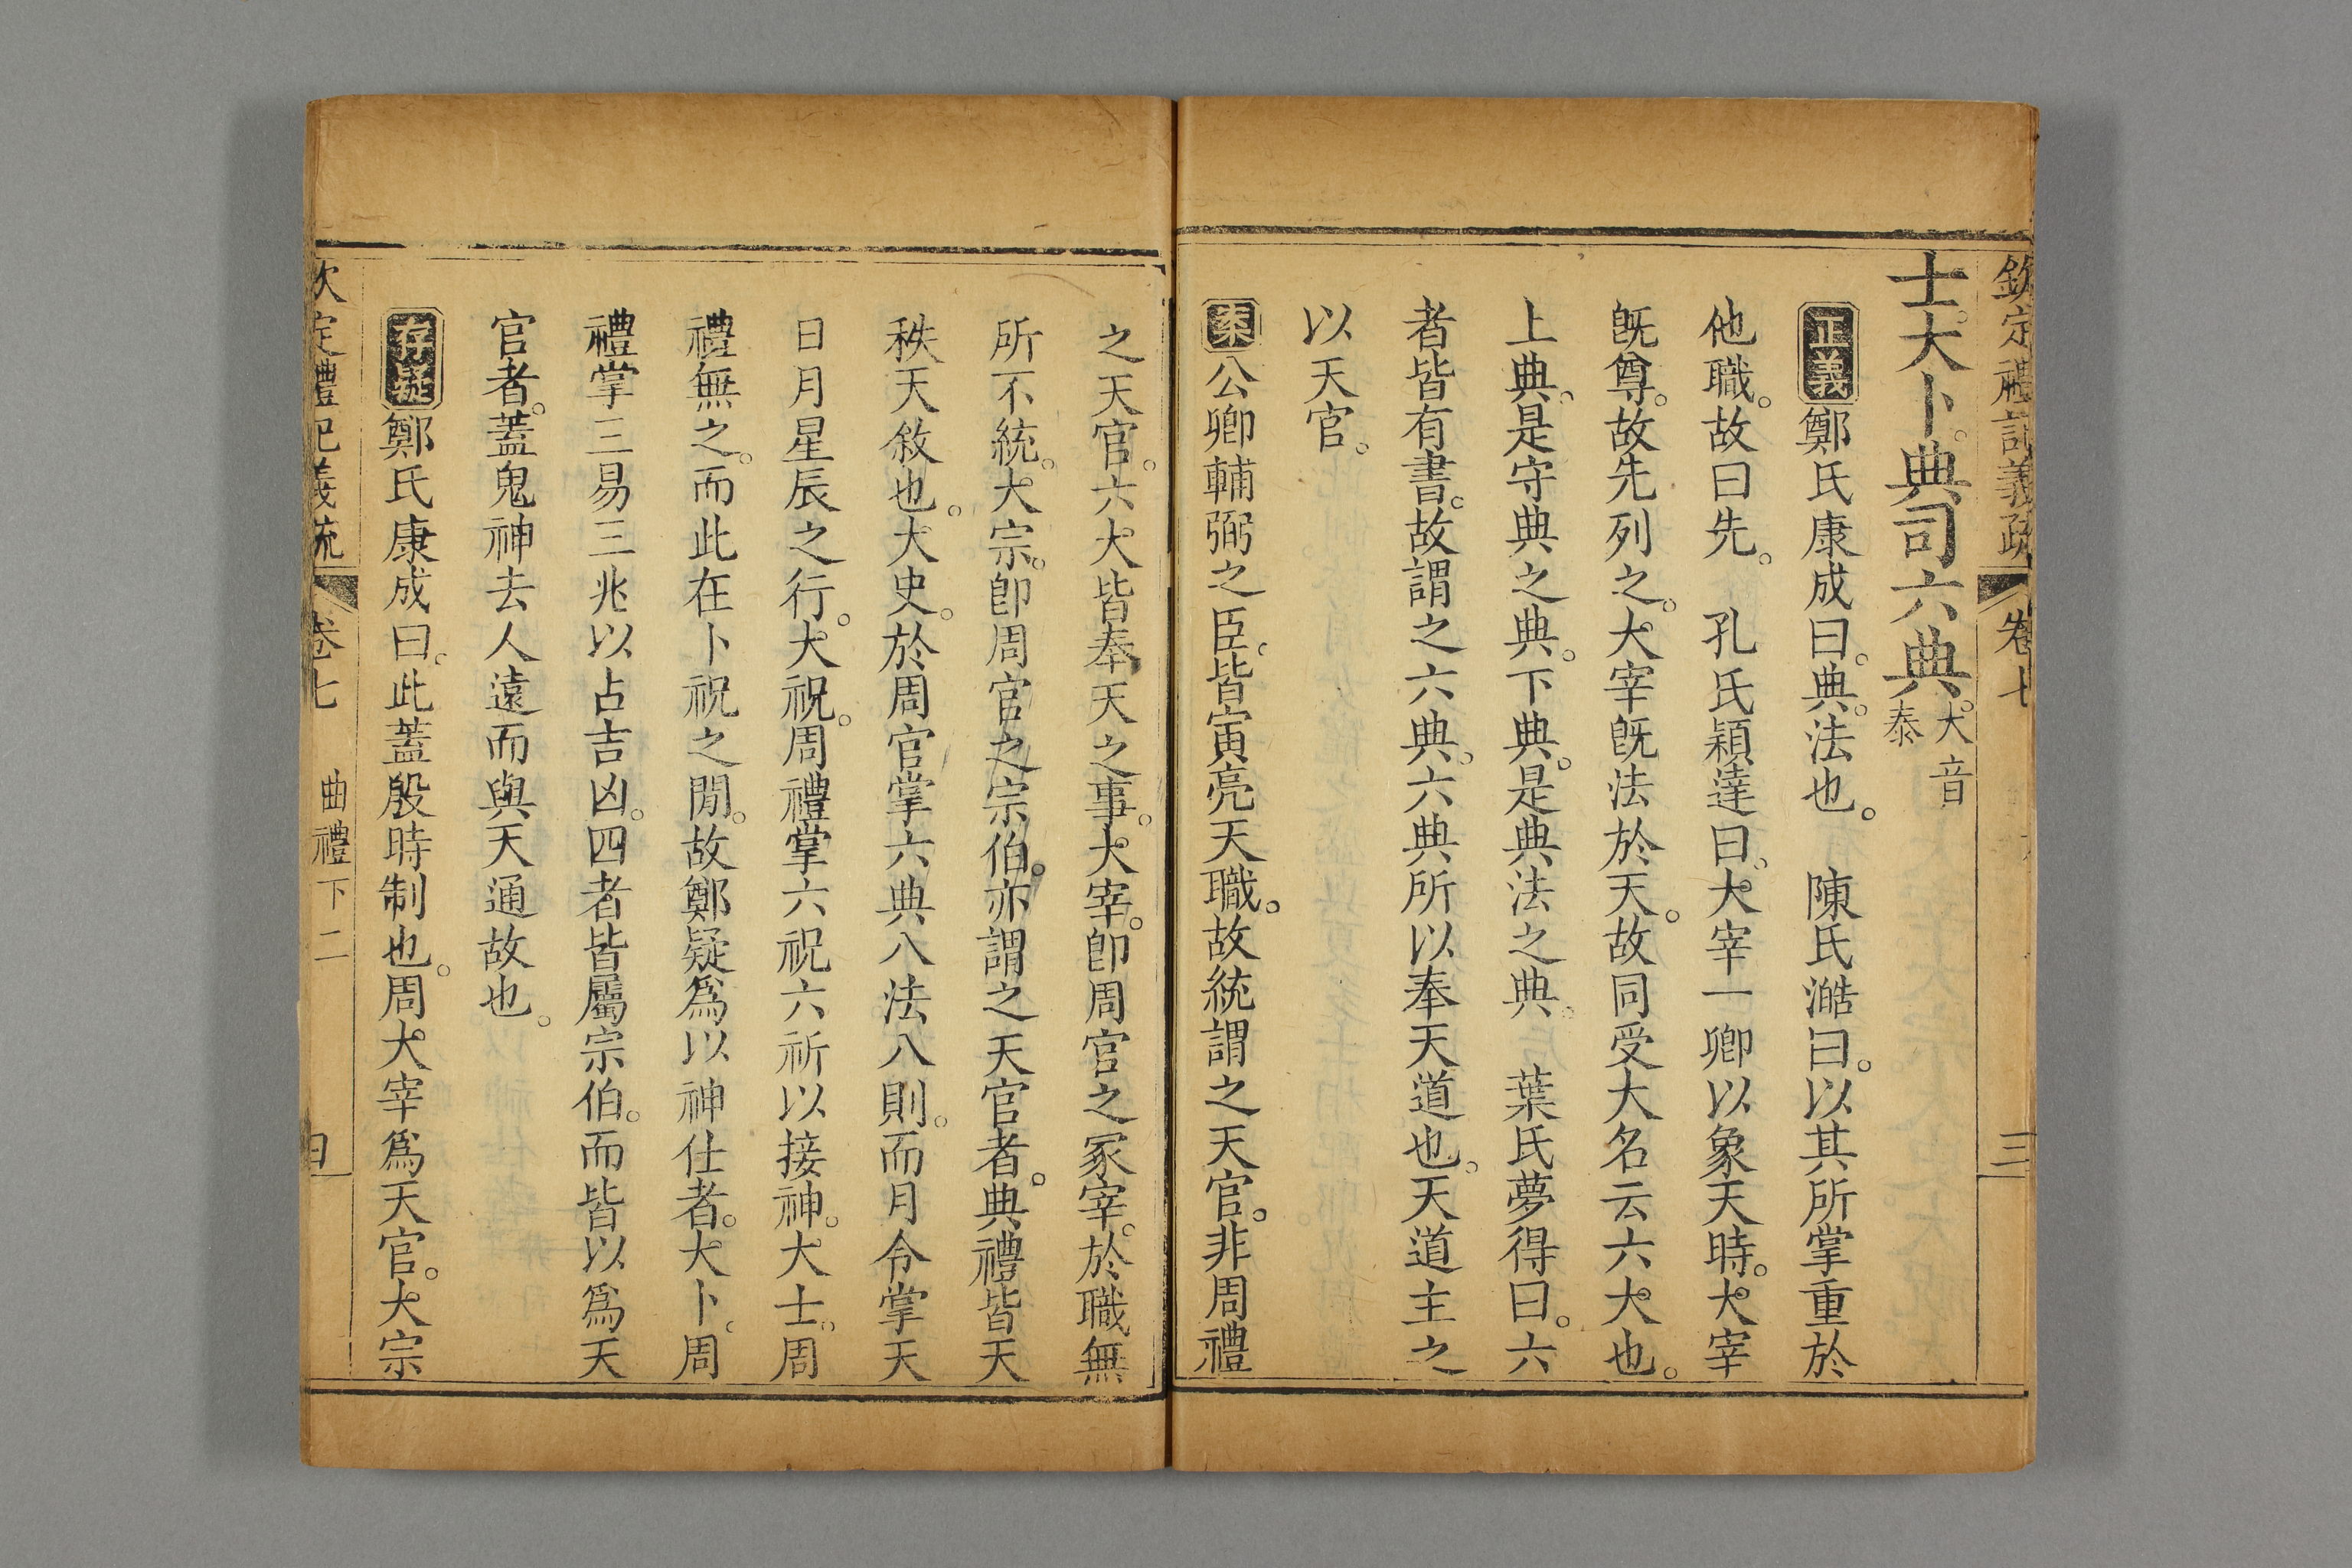 欽定禮記義疏 卷七 三
士。大卜。典司六典。大音泰
正義鄭氏康成曰。典。法也。 陳氏澔曰。以其所掌重於
他職。故曰先。 孔氏穎達曰。大宰一卿以象天時。大宰
旣尊。故先列之。大宰旣法於天。故同受大名云六大也。
上典。是守典之典。下典。是典法之典。 葉氏夢得曰。六
者皆有書。故謂之六典。六典所以奉天道也。天道主之
以天官。
案公卿輔弼之臣。皆寅亮天職。故統謂之天官。非周禮
之天官。六大皆奉天之事。大宰。卽周官之冢宰。於職無
所不統。大宗。卽周官之宗伯。亦謂之天官者。典禮皆天
秩天敘也。大史。於周官掌六典八法八則。而月令掌天
日月星辰之行。大祝。周禮掌六祝六祈以接神。大士。周
禮無之。而此在卜祝之閒。故鄭疑爲以神仕者。大卜。周
禮掌三易三兆以占吉凶。四者皆屬宗伯。而皆以爲天
官者。蓋鬼神去人遠而與天通故也。
存疑鄭氏康成曰。此蓋殷時制也。周大宰爲天官。大宗
欽定禮記義疏 卷七 曲禮下二